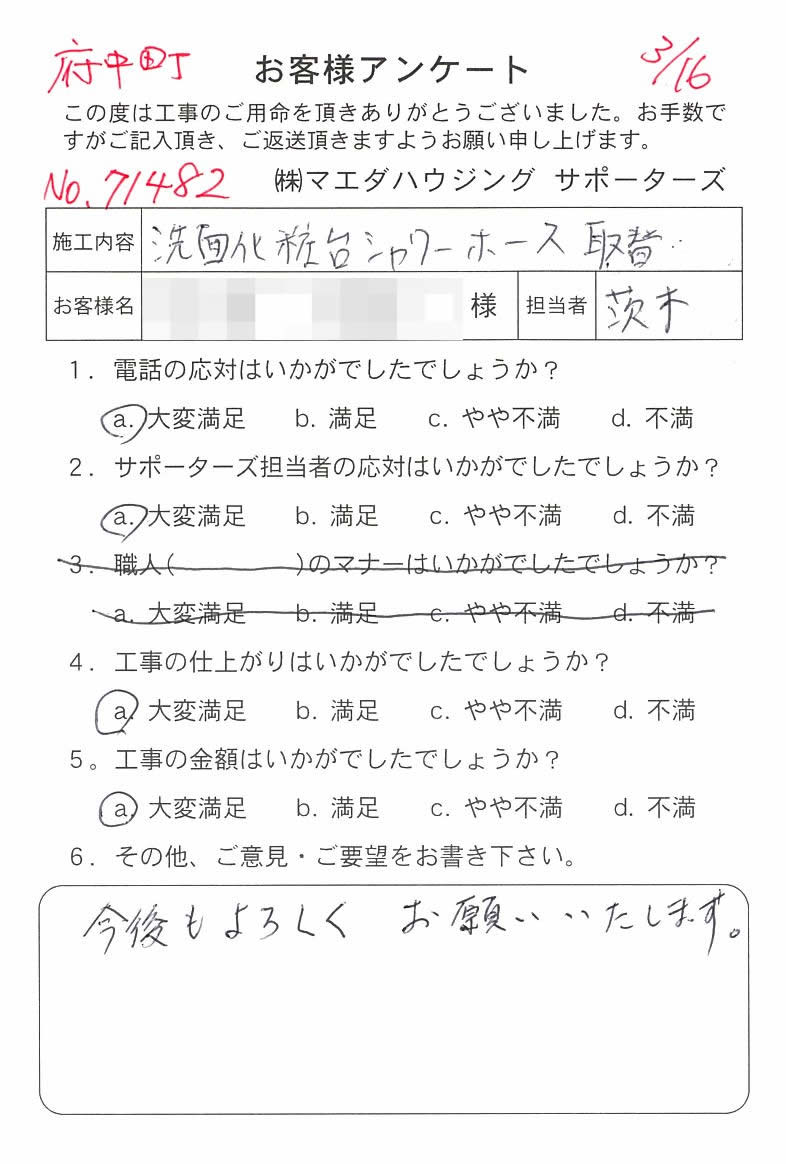 府中町 お客様アンケート 3/16
この度は工事のご用命を頂きありがとうございました。お手数で
すがご記入頂き、ご返送頂きますようお願い申し上げます。
No.71482 ㈱マエダハウジング サポーターズ
施工内容 洗面化粧台シャワーホース取替
お客様名 様 担当者 茨木
1. 電話の応対はいかがでしたでしょうか？
a. 大変満足 b. 満足 c. やや不満 d. 不満
2. サポーターズ担当者の応対はいかがでしたでしょうか？
a. 大変満足 b. 満足 c. やや不満 d. 不満
3. 職人( )のマナーはいかがでしたでしょうか？
a. 大変満足 b. 満足 c. やや不満 d. 不満
4. 工事の仕上がりはいかがでしたでしょうか？
a. 大変満足 b. 満足 c. やや不満 d. 不満
5。工事の金額はいかがでしたでしょうか？
a. 大変満足 b. 満足 c. やや不満 d. 不満
6. その他、ご意見・ご要望をお書き下さい。
今後もよろしく お願いいたします。